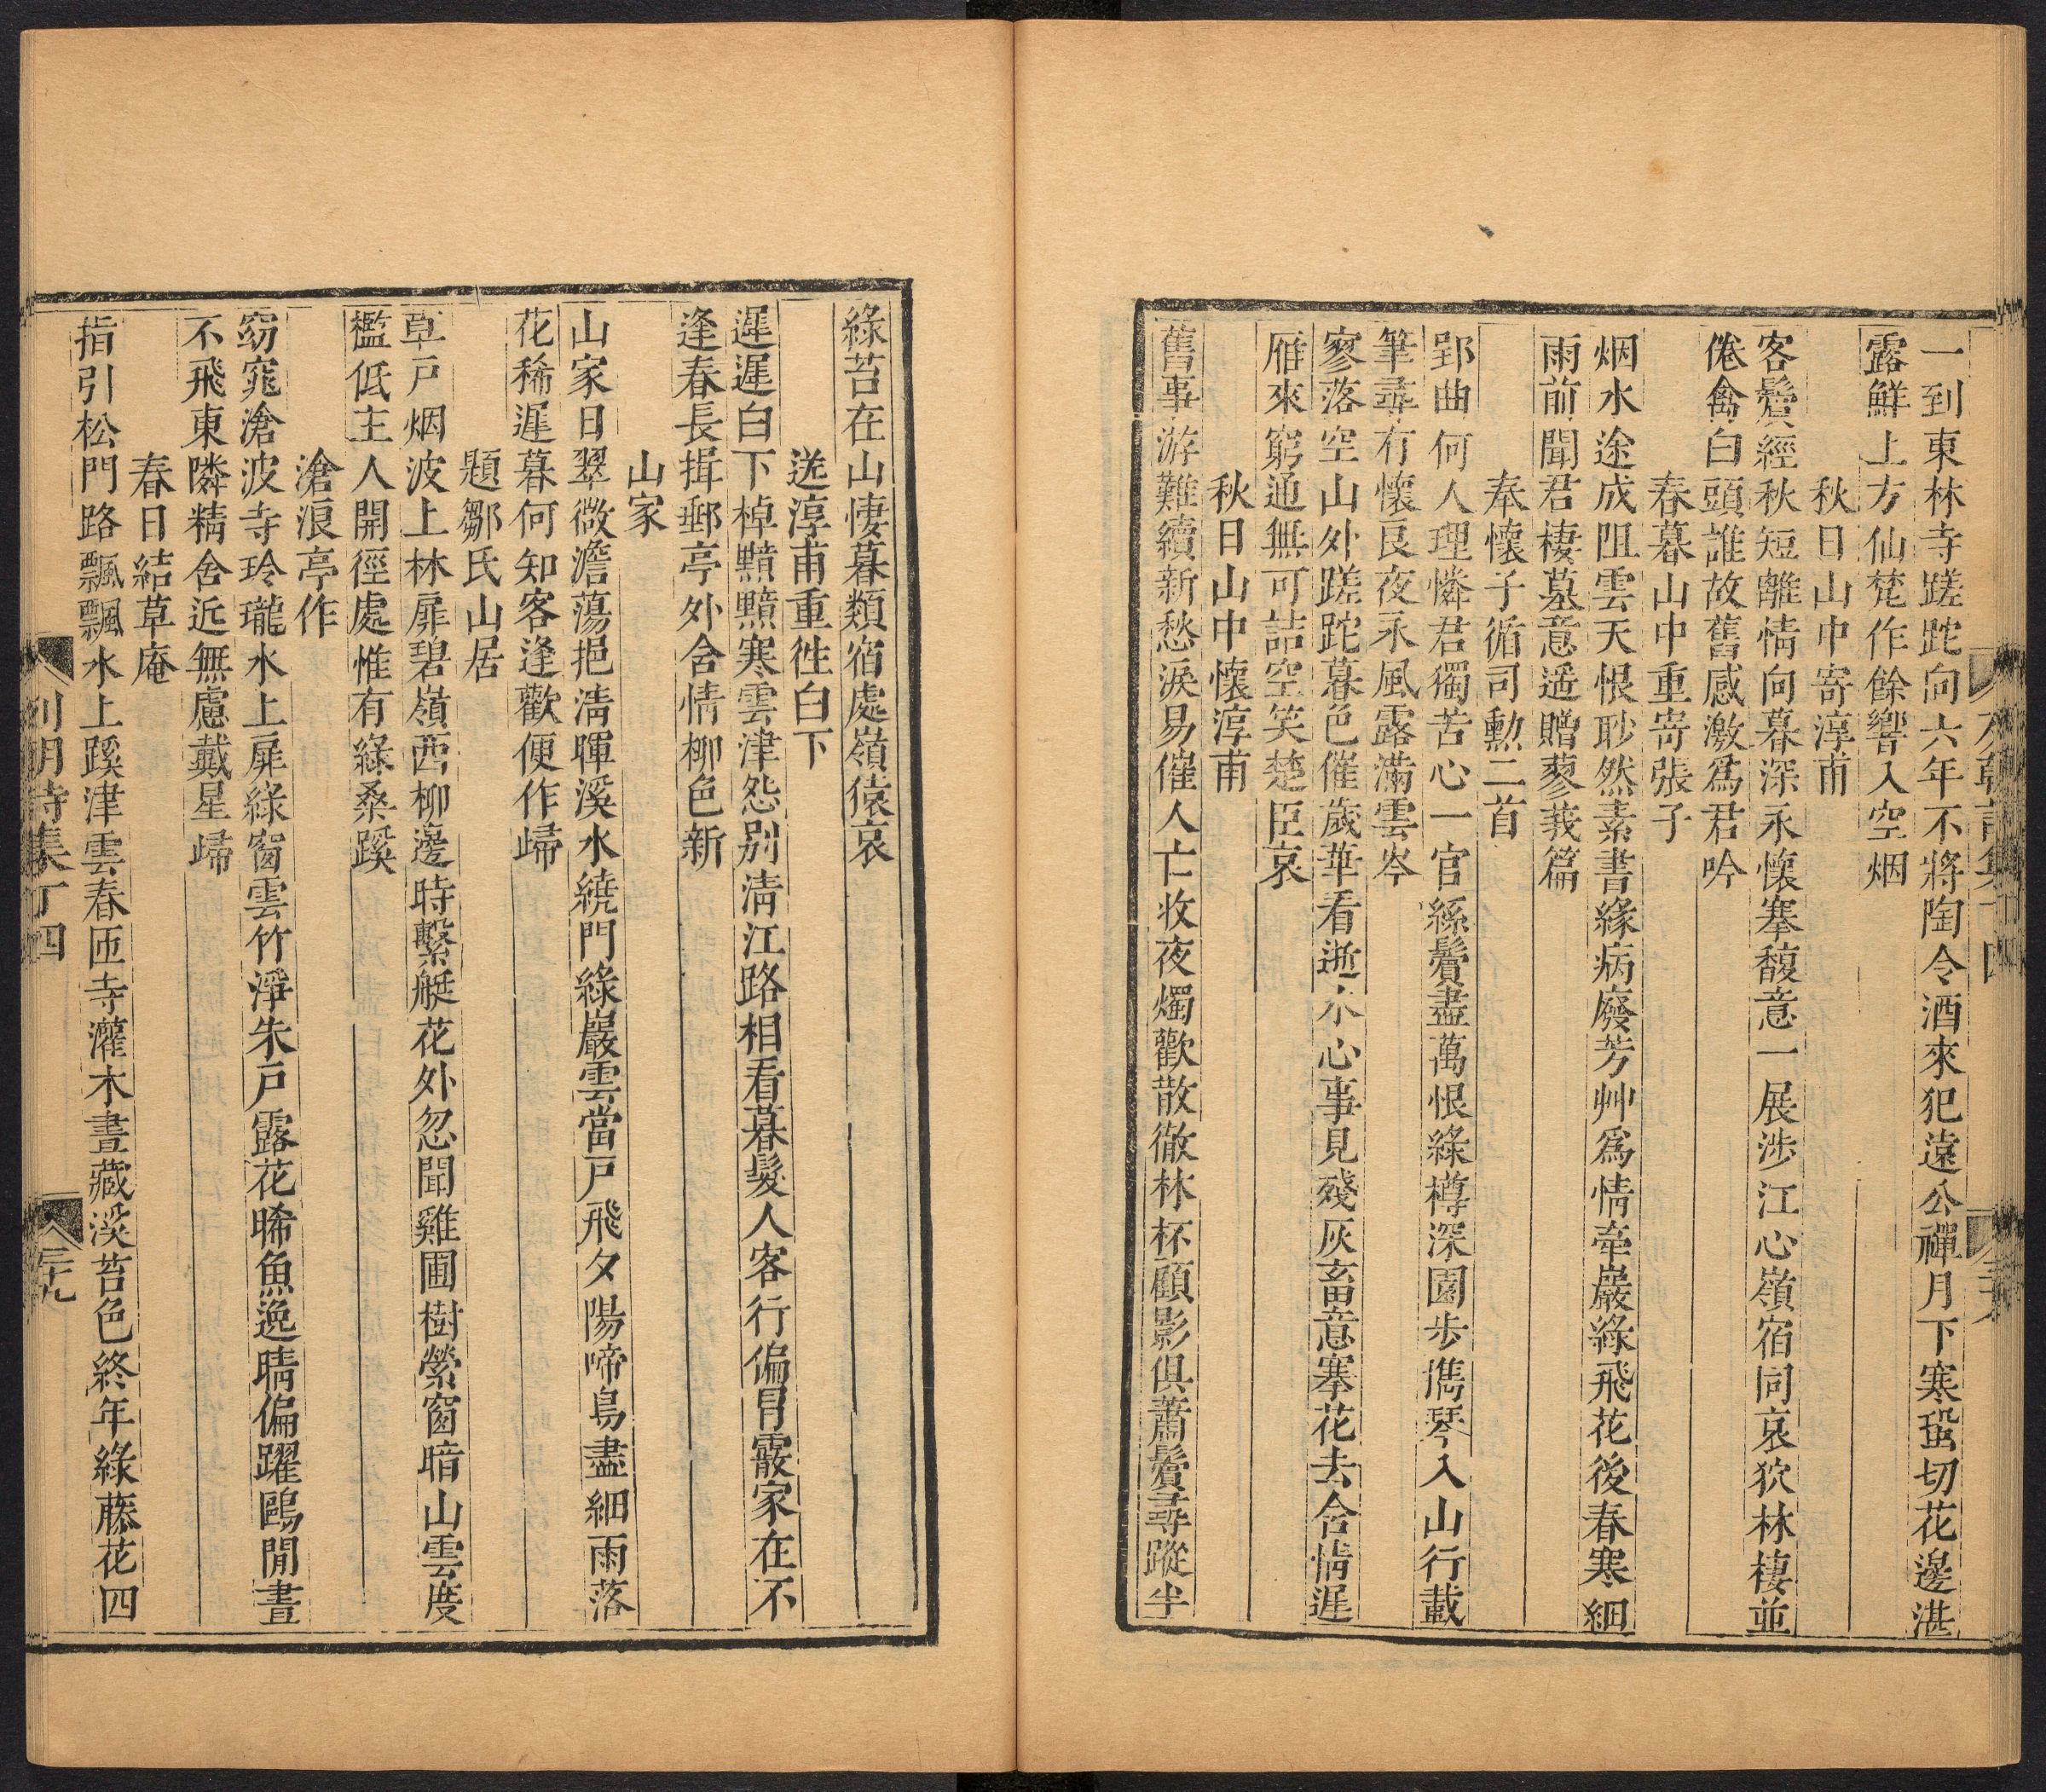 一到東林寺蹉跎向六年不將陶令酒來犯遠公禪月下寒蛩切花邊湛
露鮮上方仙梵作餘響入空烟
秋日山中寄淳甫
客鬢經秋短離情向暮深永懷搴馥意一展涉江心嶺宿同哀狖林棲並
倦禽白頭誰故舊感激爲君吟
春暮山中重寄張子
烟水途成阻雲天恨眇然素書緣病廢芳艸爲情牽巖綠飛花後春寒細
雨前聞君棲墓意遥贈蓼莪篇
奉懷子循司勲二首
郢曲何人理憐君獨苦心一官絲鬢盡萬恨綠樽深園步攜琴入山行載
筆尋有懷良夜永風露滿雲岑
寥落空山外蹉跎暮色催歲華看逝水心事見殘灰畜意搴花去含情遲
雁來窮通無可詰空笑楚臣哀
秋日山中懷淳甫
舊事游難續新愁淚易催人亡收夜燭歡散徹林杯顧影俱蕭鬢尋蹤半
綠苔在山悽暮類宿處嶺猿哀
送淳甫重徃白下
遲遲白下棹黯黯寒雲津怨别清江路相看暮髮人客行偏冒霰家在不
逢春長揖郵亭外含情柳色新
山家
山家日翠微澹蕩挹清暉溪水繞門綠巖雲當戸飛夕陽啼鳥盡細雨落
花稀遲暮何知客逢歡便作歸
題鄒氏山居
草戸烟波上林扉碧嶺西柳邊時繫艇花外忽聞雞圃樹縈窗暗山雲度
檻低主人開徑處惟有綠桑蹊
滄浪亭作
窈窕滄波寺玲瓏水上扉綠窗雲竹淨朱戸露花晞魚逸晴偏躍鷗閒晝
不飛東隣精舍近無慮戴星歸
春日結草庵
指引松門路飄飄水上蹊津雲春匝寺灌木晝藏溪苔色終年綠藤花四
列朝詩集丁四
三十九